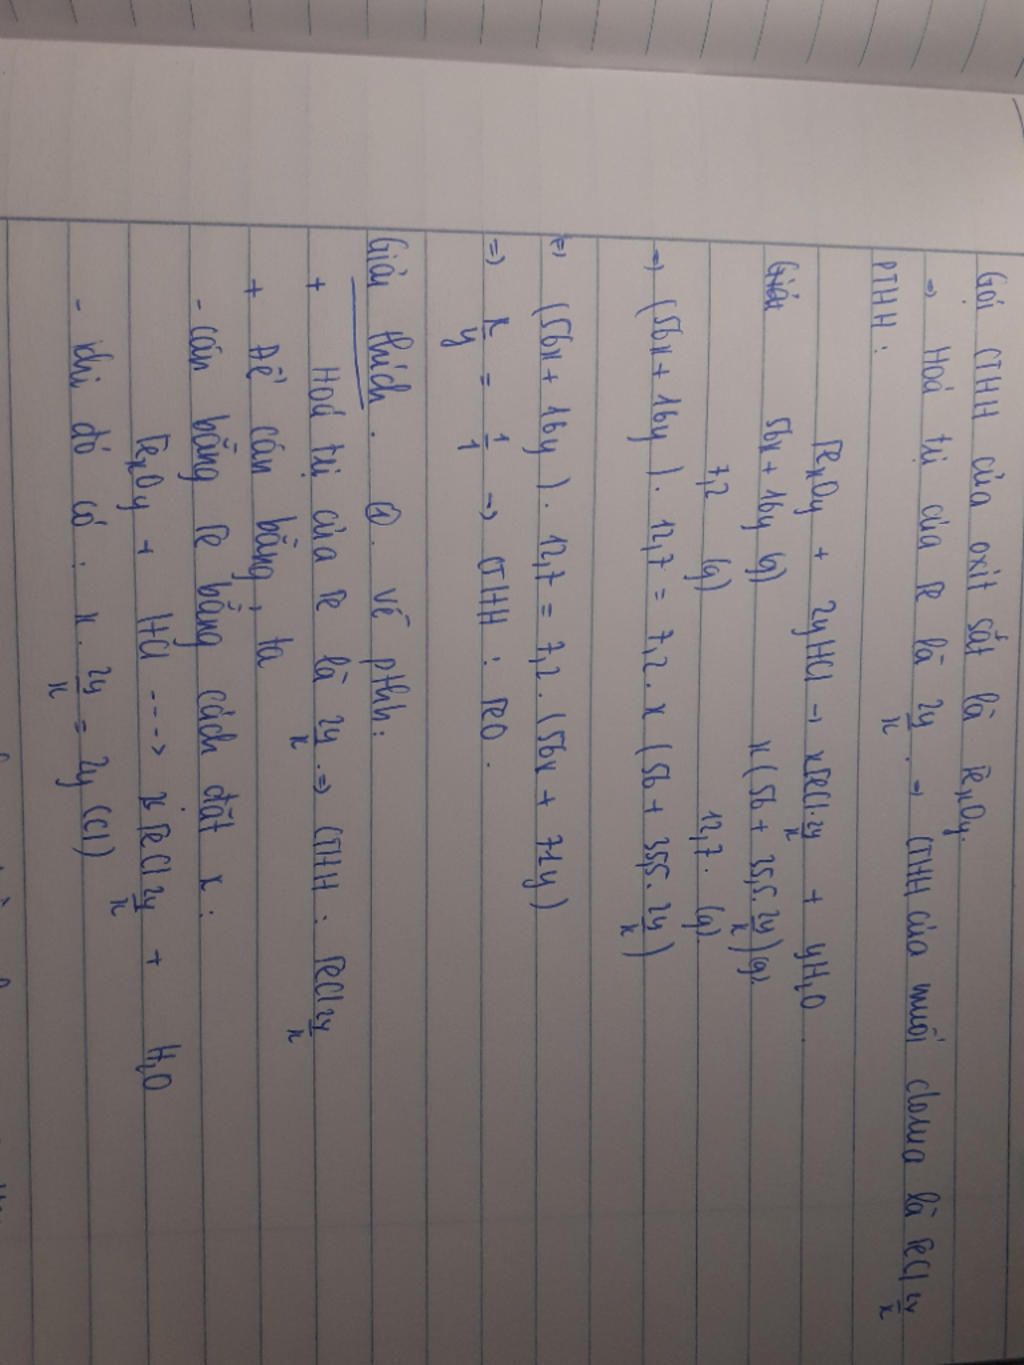 Gọi CTHH của oxit sắt là FexOy.
=> Hoá trị của Fe là 2y/x. => CTHH của muối clorua là FeCl2y/x
PTHH:
FexOy + 2yHCl → xFeCl2y/x + yH2O
Giải 56x + 16y (g) x(56 + 35,5.2y/x)(g).
7,2 (g) 12,7. (g).
=> (56x + 16y). 12,7 = 7,2. x (56 + 35,5. 2y/x)
<=> (56x + 16y). 12,7 = 7,2. (56x + 71y)
=> x/y = 1/1 → CTHH: FeO.
Giải thích. ①. Về pthh:
+ Hoá trị của Fe là 2y/x. => CTHH: FeCl2y/x
+ Để cân bằng, ta
- cân bằng Fe bằng cách đặt x:
FexOy + HCl ---> xFeCl2y/x + H2O
- khi đó có: x. 2y/x = 2y (Cl)